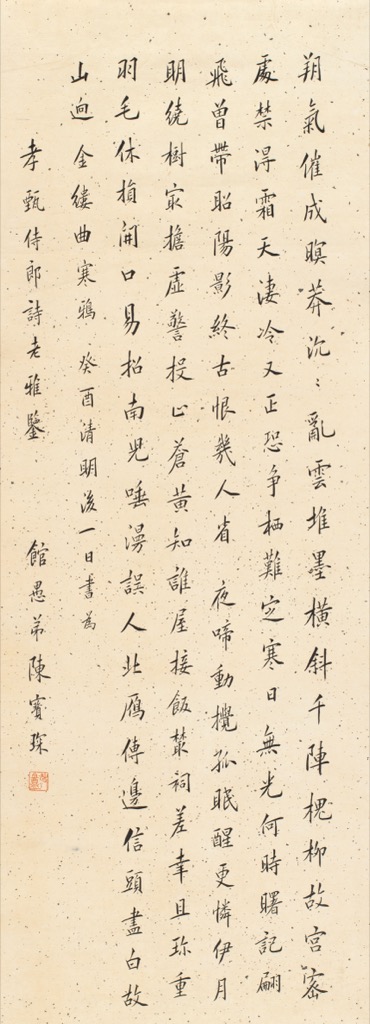 朔氣催成暝莽沉〻亂雲堆墨橫斜千陣槐柳故宮密
處禁得霜天淒冷又正恐爭栖難定寒日無光何時曙記翩
飛曾帶昭陽影終古恨幾人省 夜啼動攪孤眠醒更憐伊月
明繞樹冣擔虛警投止蒼黃知誰屋接飯叢祠差幸且珍重
羽毛休損開口易招南兒唾漫誤人北鴈傳邊信頭盡白故
山迥 金縷曲寒鴉 癸酉清明後一日書為
孝甄侍郎詩老雅鑒 館愚弟陳寶琛